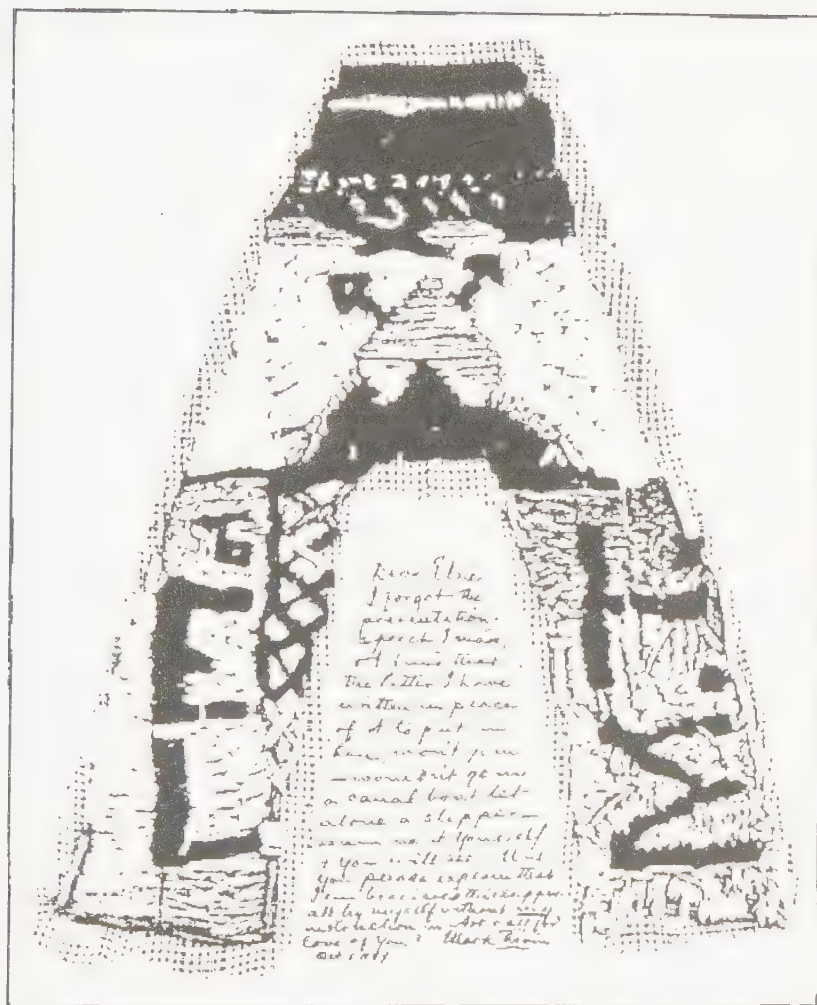 Dear Elsie,
I forgot the
presentation
speech I made,
that
the letter I have
written in place
of it to put in
here, won't go in
— wouldn't go in
a canal boat let
alone a slipper —
it yourself
& you will see.
you please explain that
I this slipper
all by myself without any
instruction in Art & all for
love of you? Mark Twain
Oct